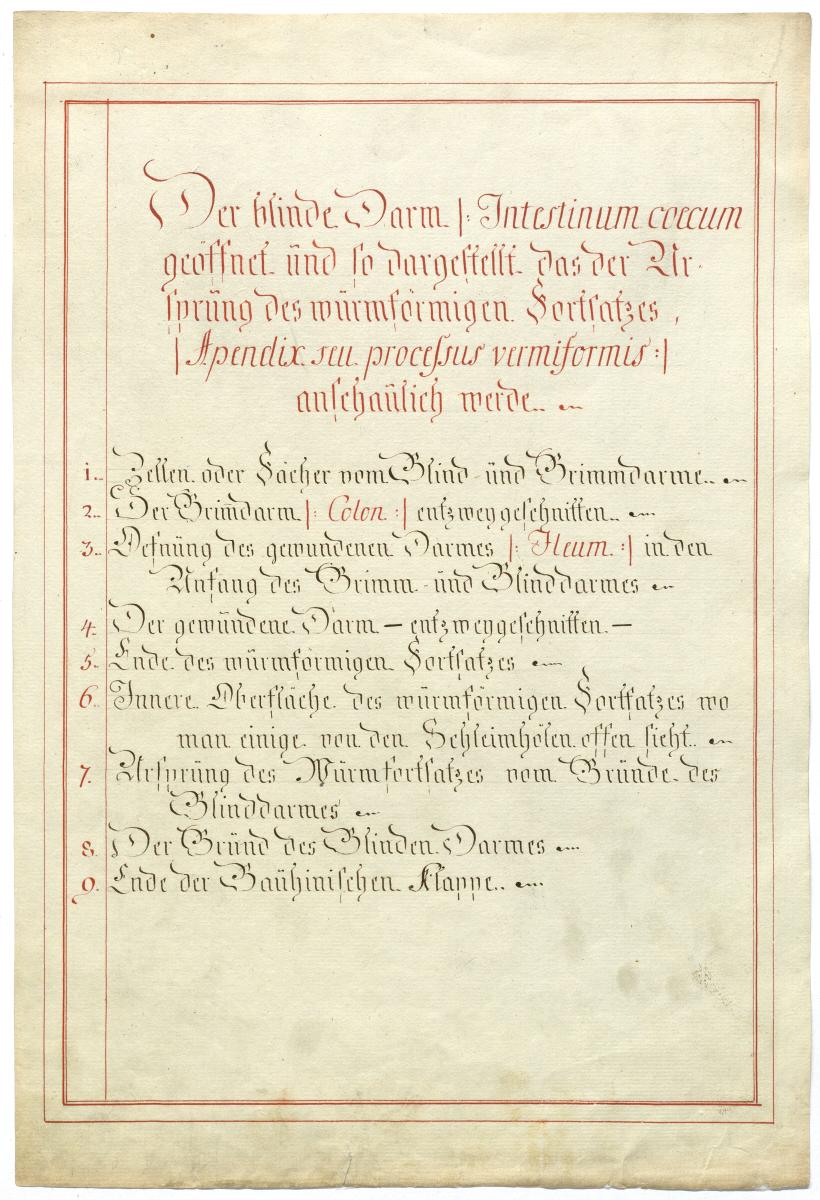 Der blinde Darm |: Intestinum coecum
geöffnet und so dargestellt das der Ur-
sprung des wurmförmigen Fortsatzes,
| Apendix seu processus vermiformis :|
anschaulich werde.
1. Zellen oder Fächer vom Blind- und Grimmdarme.
2. Der Grim̅darm |: Colon :| entzweygeschnitten.
3. Oefnung des gewundenen Darmes |: Ileum :| in den
Anfang des Grimm- und Blinddarmes
4. Der gewundene Darm — entzweygeschnitten. —
5. Ende des wurmförmigen Fortsatzes
6. Innere Oberfläche des wurmförmigen Fortsatzes wo
man einige von den Schleimhölen offen sieht.
7. Ursprung des Wurmfortsatzes vom Grunde des
Blinddarmes
8. Der Grund des Blinden Darmes
9. Ende der Bauhinischen Klappe.